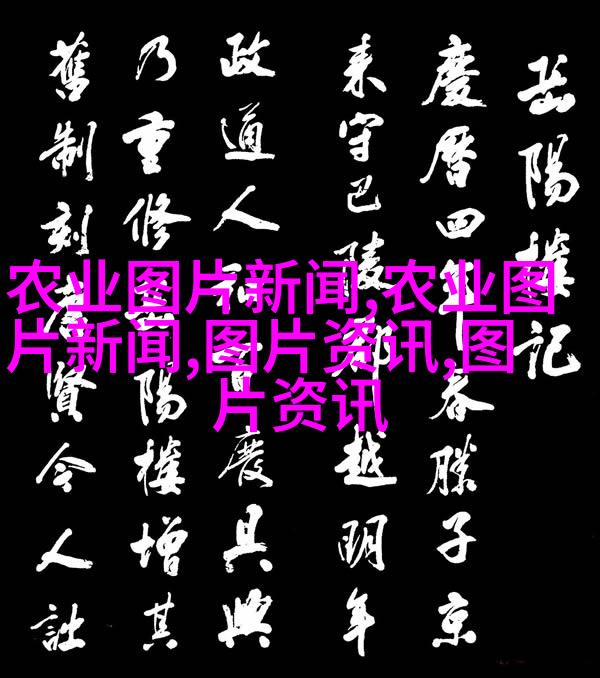 岳陽樓記
慶曆四年春滕子京
来守巴陵郡越明年
政通人和百廢具興
乃重修岳陽樓增其
舊制刻唐賢今人
农业图片新闻,农业图
片新闻,图片资讯,图
片资讯